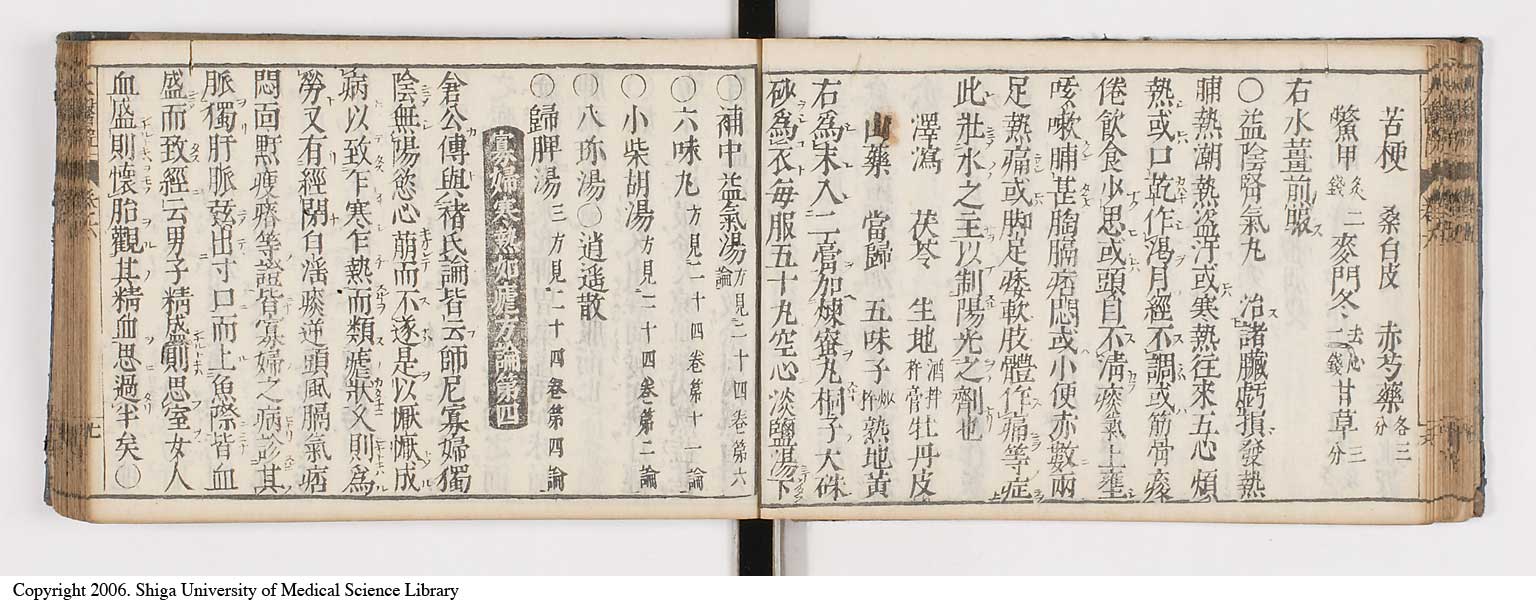 苦梗 桑白皮 赤芍藥各三分
鱉甲炙二錢 麥門冬去心二錢 甘草三分
右水薑煎服
〇益陰腎氣丸 治諸臟虧損發熱
晡熱潮熱盗汗或寒熱徃來五心煩
熱或口乾作渴月經不調或筋骨痠
倦飲食少思或頭目不清痰氣上壅
咳嗽晡甚胸膈痞悶或小便赤數兩
足熱痛或脚足痿軟肢體作痛等症
此壮水之主以制陽光之劑也
澤瀉 茯苓 生地酒拌杵膏 牡丹皮
山藥 當歸 五味子杵炒 熟地黄
右為末入二膏加煉蜜丸桐子大硃
砂為衣每服五十丸空心淡鹽湯下
〇補中益氣湯方見二十四卷第六論
〇六味丸方見二十四卷第十一論
〇小柴胡湯方見二十四卷第二論
〇八珎湯〇逍遥散
〇歸脾湯三方見二十四卷第四論
寡婦寒熱如瘧方論第四
倉公傳與褚氏論皆云師尼寡婦獨
陰無陽慾心萠而不遂是以懨懨成
病以致乍寒乍熱而類瘧狀久則為
勞又有經閉白淫痰逆頭風膈氣痞
悶面䵟瘦瘠等證皆寡婦之病診其
脈獨肝脈弦出寸口而上魚際皆血
盛而致經云男子精盛則思室女人
血盛則懷胎觀其精血思過半矣〇
Copyright 2006. Shiga University of Medical Science Library